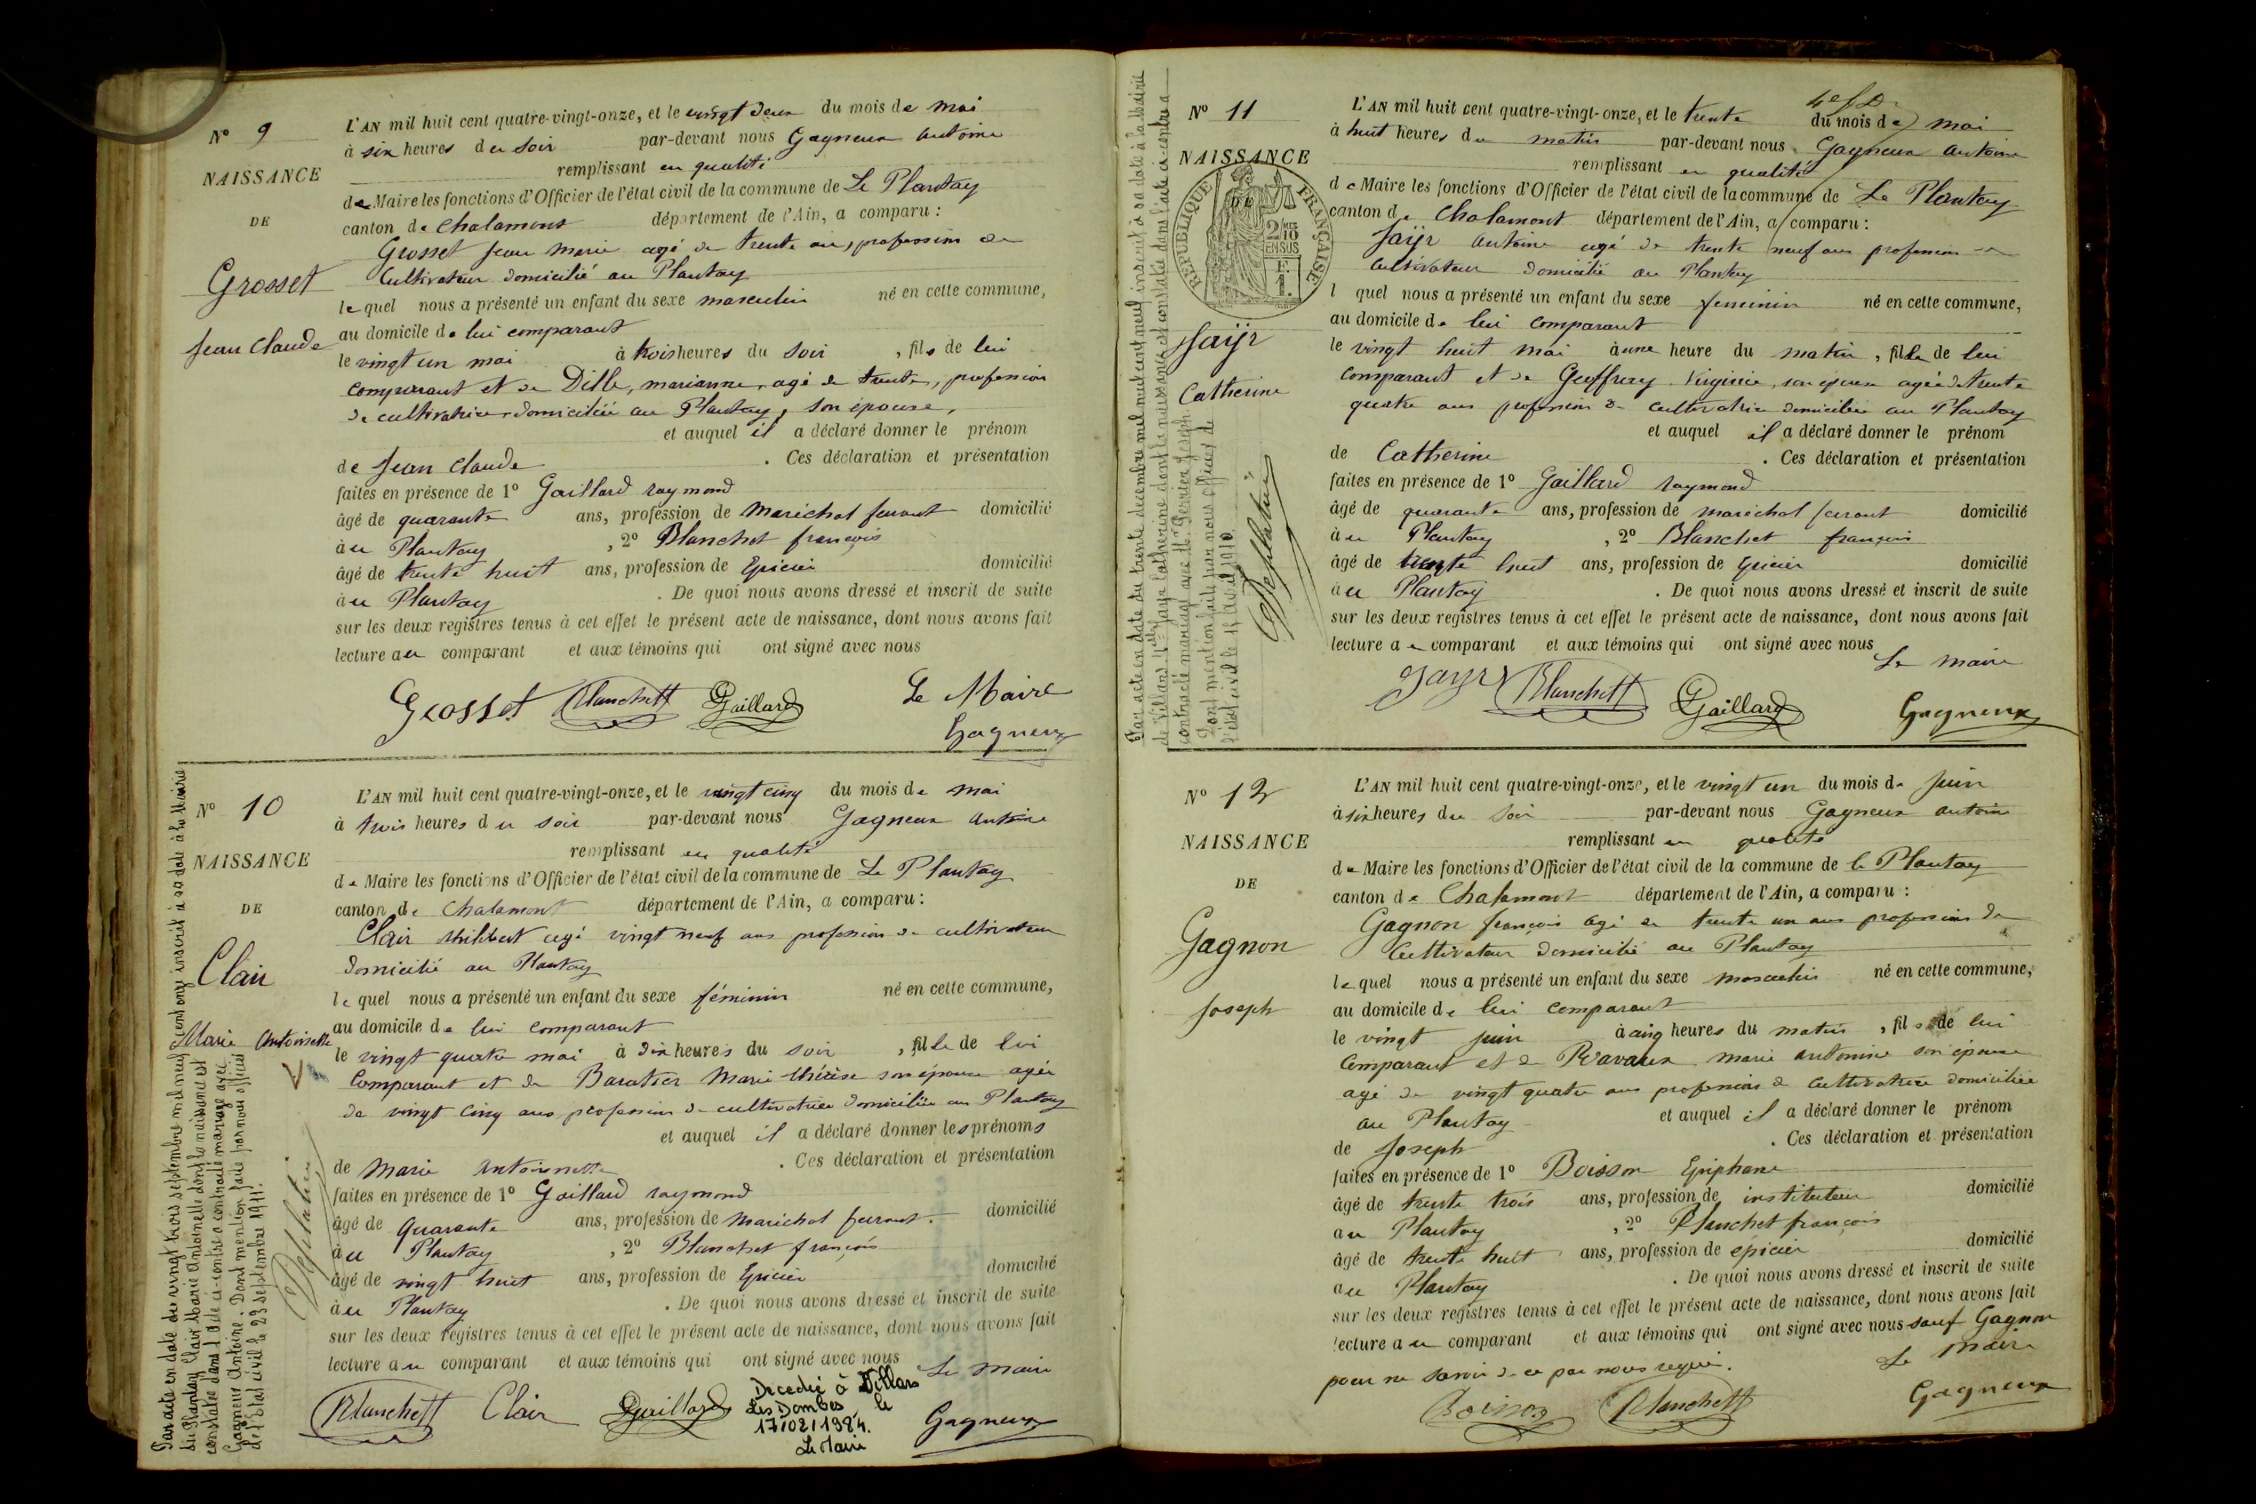 N° 9
NAISSANCE
DE
Grosset
Jean Claude
L'AN mil huit cent quatre-vingt-onze, et le vingt deux du mois de mai
à six heures du soir par-devant nous Gagneux Antoine
remplissant en qualité
de Maire les fonctions d'Officier de l'état civil de la commune de Le Plantay
canton de Chalamont département de l'Ain, a comparu :
Grosset Jean Marie agé de trente , profession de
Cultivateur domicilié au Plantay
lequel nous a présenté un enfant du sexe masculin né en cette commune,
au domicile de lui comparant
le vingt un mai à trois heures du soir , fils de lui
comparant et de Dille, marianne, agé de trente, profession
de cultivatrice domiciliée au Plantay, son épouse,
et auquel il a déclaré donner le prénom
de Jean Claude . Ces déclaration et présentation
faites en présence de 1° Gaillard raymond
âgé de quarante ans, profession de Maréchal ferrant domicilié
au Plantay , 2° Blanchet françois
âgé de trente huit ans, profession de Epicier domicilié
au Plantay . De quoi nous avons dressé et inscrit de suite
sur les deux registres tenus à cet effet le présent acte de naissance, dont nous avons fait
lecture au comparant et aux témoins qui ont signé avec nous
Le Maire
Grosset Blanchett Gaillard
Gagneux
N° 10
NAISSANCE
DE
Clair
Marie Antoinette
Par acte en date du vingt trois septembre mil neuf cent onze inscrit à sa date à la Mairie
du Plantay Clair Marie Antoinette dont la naissance est
constatée dans l'acte ci-contre a contracté mariage avec
Gagneux Antoine. Dont mention faite par nous officier
de l'Etat civil le 23 septembre 1911.
L'AN mil huit cent quatre-vingt-onze, et le vingt cinq du mois de mai
à trois heures du soir par-devant nous Gagneux Antoine
remplissant en qualité
de Maire les fonctions d'Officier de l'état civil de la commune de Le Plantay
canton de Chalamont département de l'Ain, a comparu :
Clair Philibert agé vingt neuf ans profession de cultivateur
domicilié au Plantay
lequel nous a présenté un enfant du sexe féminin né en cette commune,
au domicile de lui comparant
le vingt quatre mai à dix heures du soir , fille de lui
Comparant et de Baratier Marie thérèse son épouse agée
de vingt cinq ans profession de cultivatrice domiciliée au Plantay
et auquel il a déclaré donner les prénoms
de Marie Antoinette . Ces déclaration et présentation
faites en présence de 1° Gaillard raymond
âgé de quarante ans, profession de Maréchal ferrant. domicilié
au Plantay , 2° Blanchet françois
âgé de vingt huit ans, profession de Epicier domicilié
au Plantay . De quoi nous avons dressé et inscrit de suite
sur les deux registres tenus à cet effet le présent acte de naissance, dont nous avons fait
lecture au comparant et aux témoins qui ont signé avec nous
Le Maire
Blanchett Clair Gaillard
Gagneux
Decedée à Villars
Les Dombes le
17/02/1984.
Le Maire
N° 11
NAISSANCE
DE
RÉPUBLIQUE FRANÇAISE
2/10
EN SUS
Jaÿr
Catherine
Par acte en date du trente décembre mil neuf cent neuf inscrit à sa date à la Mairie
de Villars, Jayr Catherine dont la naissance est constatée dans l'acte ci-contre a
contracté mariage avec Mr Perrier Joseph.
Dont mention faite par nous officier de
l'état civil le avril 1910.
L'AN mil huit cent quatre-vingt-onze, et le trente du mois de mai
à huit heures du matin par-devant nous Gagneux Antoine
remplissant en qualité
de Maire les fonctions d'Officier de l'état civil de la commune de Le Plantay
canton de Chalamont département de l'Ain, a comparu :
Jaÿr Antoine agé de trente neuf ans profession de
Cultivateur domicilié au Plantay
l quel nous a présenté un enfant du sexe feminin né en cette commune,
au domicile de lui comparant
le vingt huit mai à une heure du matin , fille de lui
Comparant et de Geoffray Virginie, son épouse agée de trente
quatre ans profession de cultivatrice domiciliée au Plantay
et auquel il a déclaré donner le prénom
de Catherine . Ces déclaration et présentation
faites en présence de 1° Gaillard raymond
âgé de quarante ans, profession de maréchal ferrant domicilié
au Plantay , 2° Blanchet françois
âgé de trente huit ans, profession de Epicier domicilié
au Plantay . De quoi nous avons dressé et inscrit de suite
sur les deux registres tenus à cet effet le présent acte de naissance, dont nous avons fait
lecture au comparant et aux témoins qui ont signé avec nous
Le maire
Jayr Blanchett Gaillard
Gagneux
N° 12
NAISSANCE
DE
Gagnon
Joseph
L'AN mil huit cent quatre-vingt-onze, et le vingt un du mois de Juin
à six heures du soir par-devant nous Gagneux Antoine
remplissant en qualité
de Maire les fonctions d'Officier de l'état civil de la commune de le Plantay
canton de Chalamont département de l'Ain, a comparu :
Gagnon françois agé de trente un ans profession de
Cultivateur domicilié au Plantay
lequel nous a présenté un enfant du sexe masculin né en cette commune,
au domicile de lui comparant
le vingt juin à cinq heures du matin , fils de lui
Comparant et de Ravaux marie antonine son épouse
agé de vingt quatre ans profession de cultivatrice domiciliée
au Plantay et auquel il a déclaré donner le prénom
de Joseph . Ces déclaration et présentation
faites en présence de 1° Boisson Epiphane
âgé de trente trois ans, profession de instituteur domicilié
au Plantay , 2° Blanchet françois
âgé de trente huit ans, profession de épicier domicilié
au Plantay . De quoi nous avons dressé et inscrit de suite
sur les deux registres tenus à cet effet le présent acte de naissance, dont nous avons fait
lecture au comparant et aux témoins qui ont signé avec nous sauf Gagnon
pour ne savoir de ce par nous requis.
Le Maire
Boisson Blanchett
Gagneux